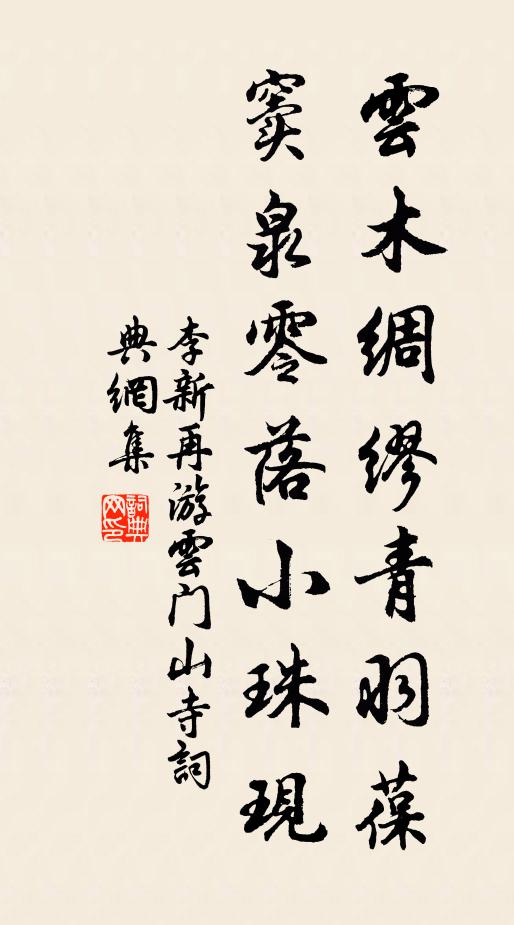 雲木綢繆青羽葆
竇泉零落小珠現
李新再游雲门山寺詞
典網集
詞典网印